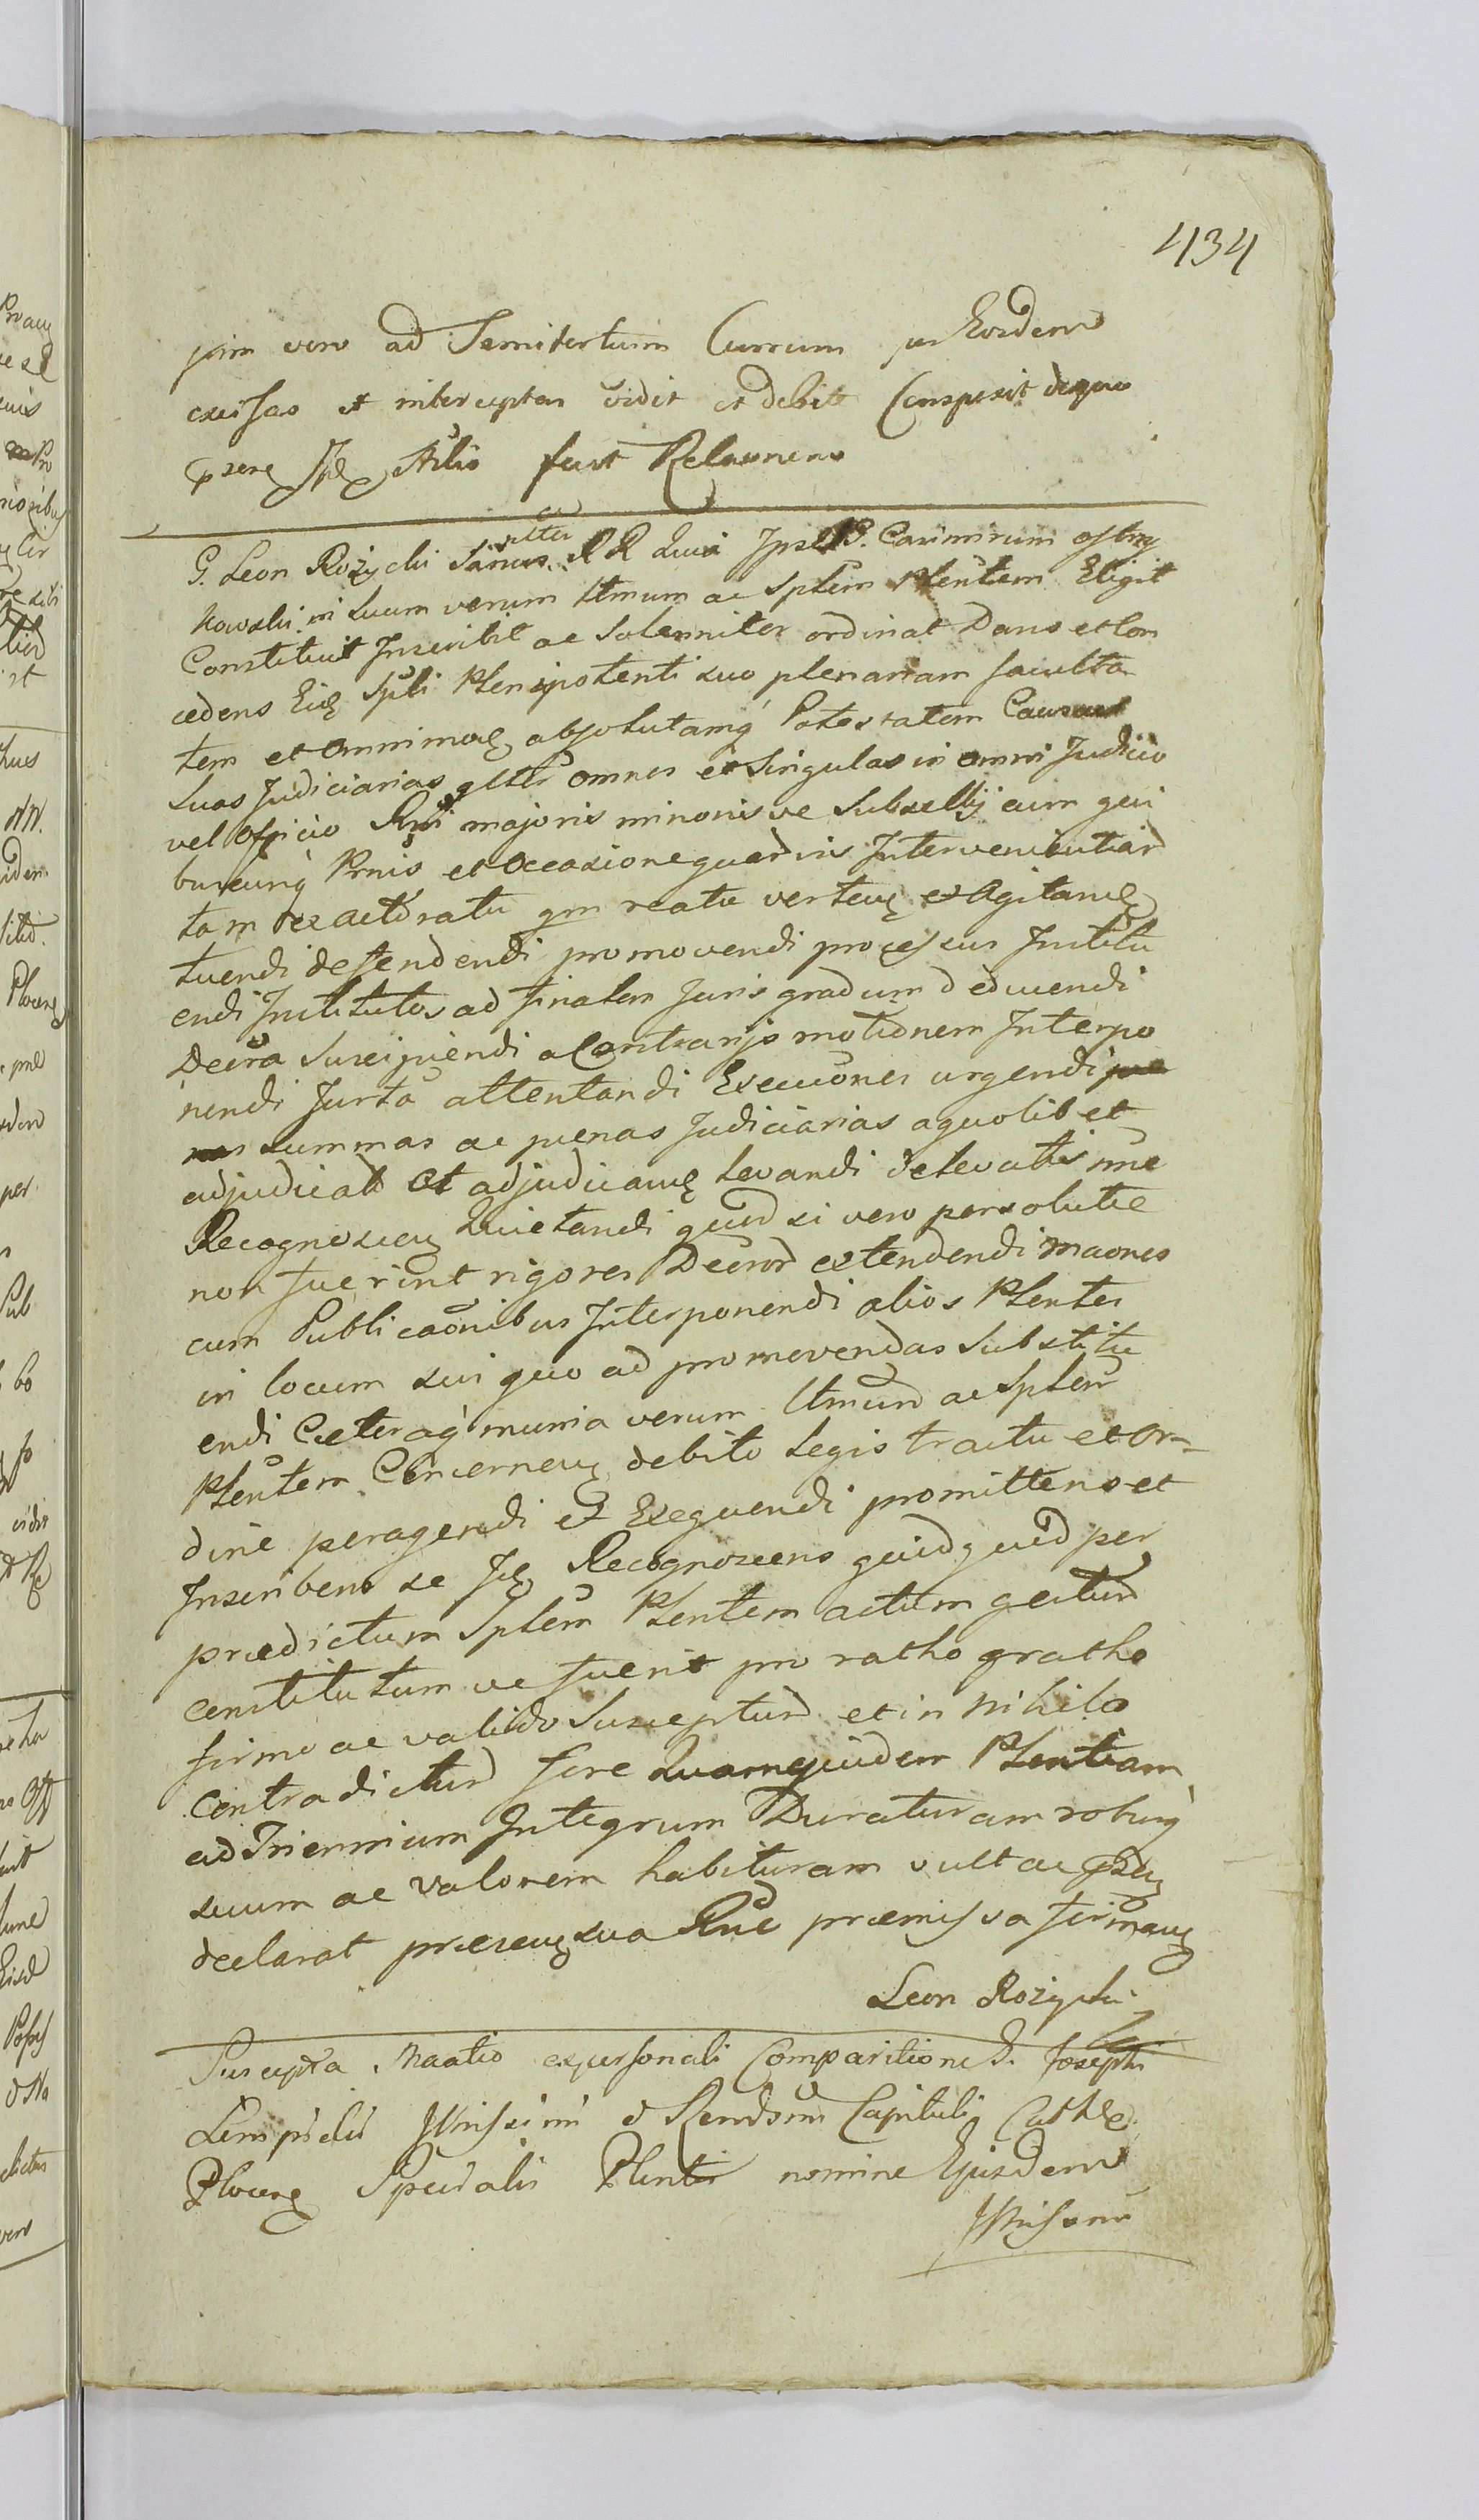 434
pim vero ad Semitertium Currum per Eosdem
excissas et interceptas vidit et debite Conspexit de quo
fecit Relaonem
G. Leon Rożycki Sanus etter R R Quia Ipse G. Casimirum Ostrzy
kowski in suum verum Ltmum ac Splem Plentem Eligit
Constituit Inscribit ac Solenniter ordinat Dans et Con
cedens Eidę Spli Plenipotenti suo plenariam faculta
tem et omnimodę absolutamq Potestatem Causas
suas Judiciarias glter omnes et Singulas in omni Judicio
vel Officio Rni majoris minorisve Subsellij cum qui
buscunq Prnis et Occasione quarumvis Intervenientiard
tam ex actoratu qm reatu vertenę et Agitandę
tuendi defendendi promovendi processus Institu
endi Institutos ad finalem Juris gradum deducendi
Decra Suscipiendi a Contrarijs motionem Interpo
nendi Jurta attentandi Execuones urgendi
summas ac paenas Judiciarias a quolibet
adjudicat et adjudicandę Levandi de levatis me
Recognoscenę Quietandi quod si vero persolutae
non fuerint rigores Decror extendendi maones
cum Publicaonibus Interponendi alios Plentes
in locum sui quo ad promovendas Substitu
endi Caeteraq munia verum Ltmum ac Splem
Plentem Concernenę debito Legis tractu et or-
dine peragendi et Exequendi promittens et
Inscribens se Recognoscens quidquid per
praedictum Splem Plentem actum gestum
constitutum ve fuerit pro ratho gratho
firmo ac valido Suscepturd et in nihilo
Contradicturd fore Quamquidem Plentiam
ad Triennium Integrum Duraturam roburq
suum ac valorem habituram vult ac
declarat praesenę sua Rne praemissa firmanę
Leon Rożycki
Suscepta Maatio ex personali Comparitione G. Josephi
Lempicki et Rendsmi Capituli Cathlę
Plocenę Specialis Plentis nomine Ejusdem